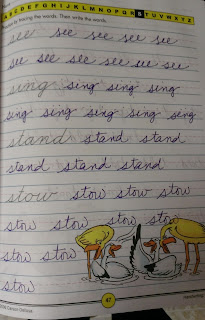 A B C D E F G H I J K L M N O P Q R S T U V W X Y Z
by tracing the words. Then write the words.
see see see see see
see see see see see see
sing sing sing sing
sing sing sing sing sing
stand stand stand
stand stand stand
stow stow stow stow
stow stow stow stow
stow stow
stow
47